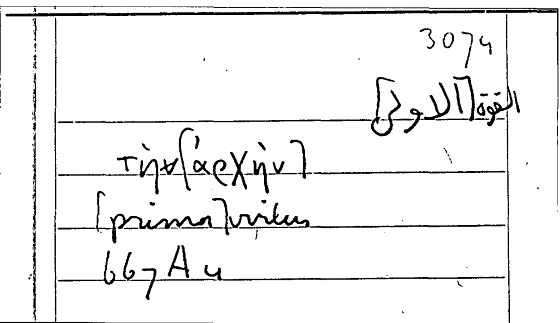 3074
القوة [الاولى]
τὴν [ἀρχὴν]
[prima] virtus
667 A 4